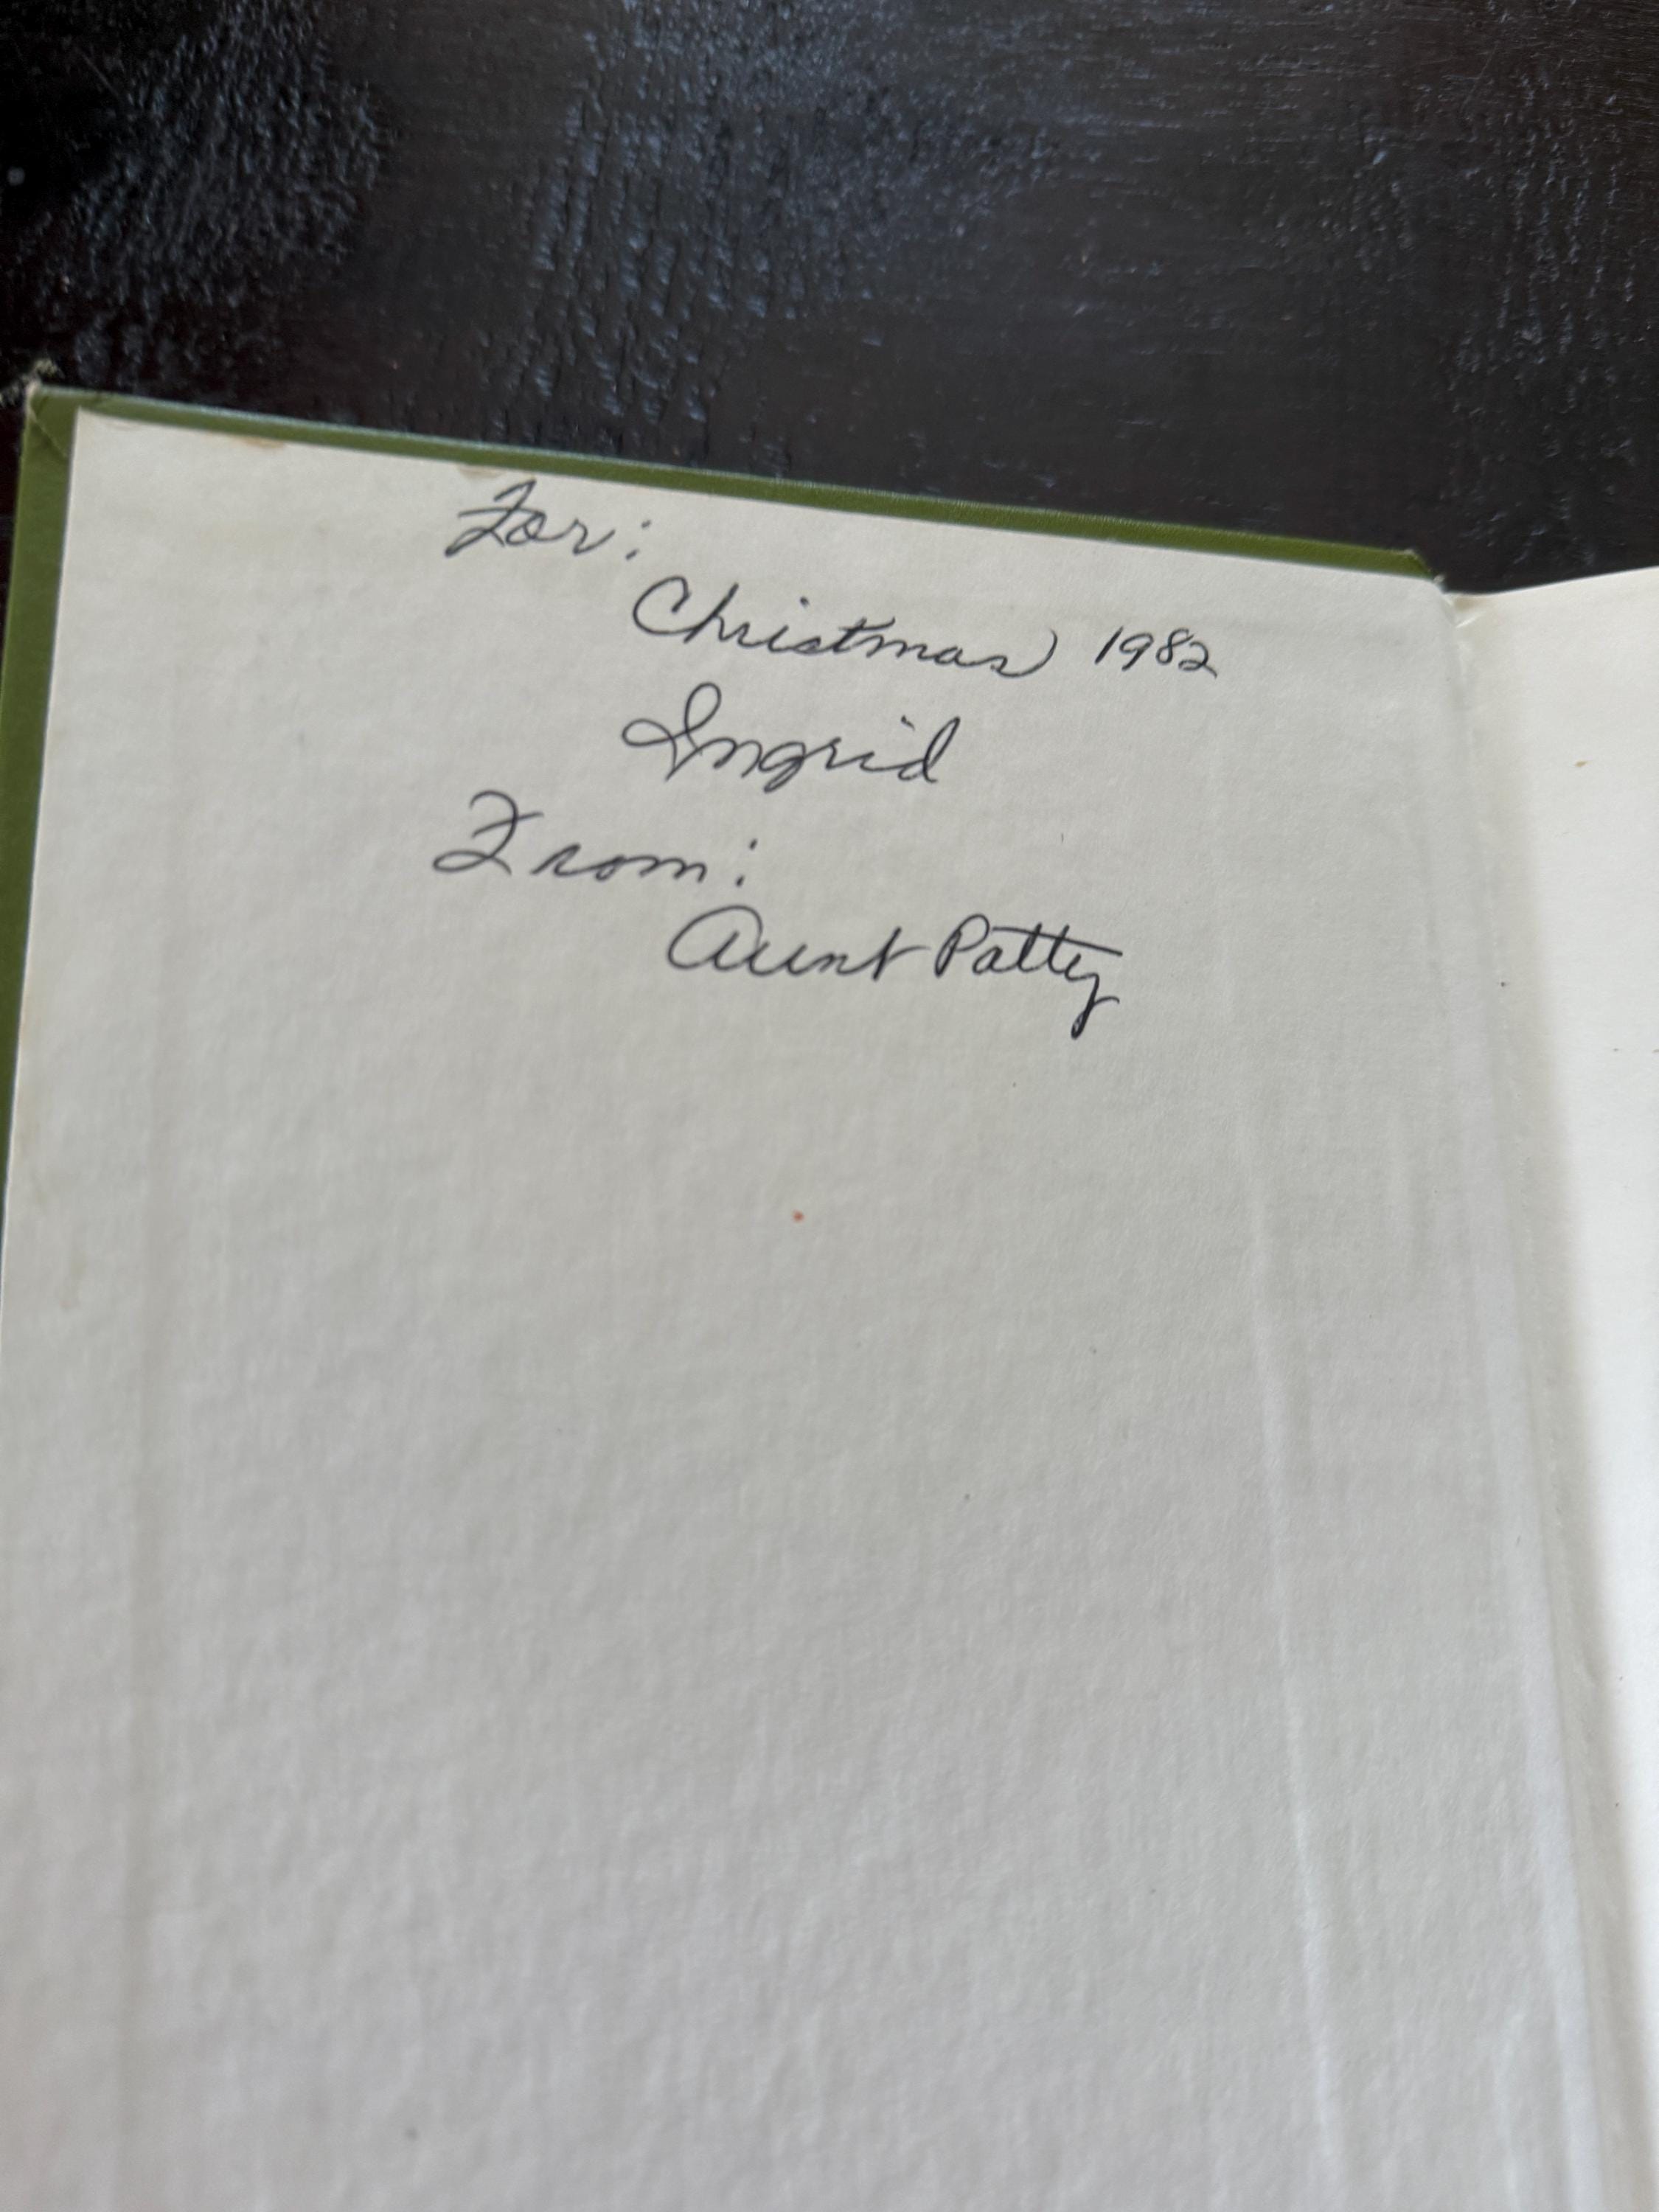 For:
Christmas 1982
Ingrid
From:
Aunt Patty